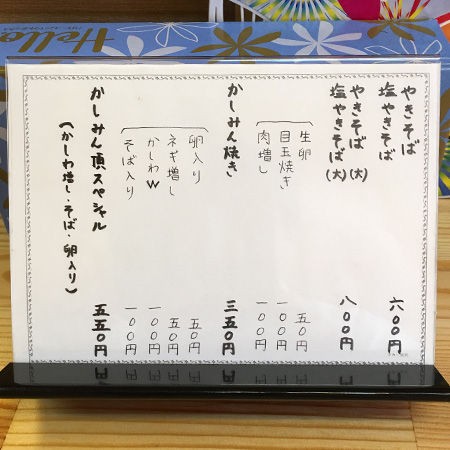 Hello
やきそば
塩やきそば 六〇〇円
やきそば(大)
塩やきそば(大) 八〇〇円
生卵 五〇円
目玉焼き 一〇〇円
肉増し 一〇〇円
かしみん焼き 三五〇円
卵入り 五〇円
ネギ増し 五〇円
かしわW 一〇〇円
そば入り 一〇〇円
かしみん頂スペシャル 五五〇円
(かしわ増し・そば・卵入り)